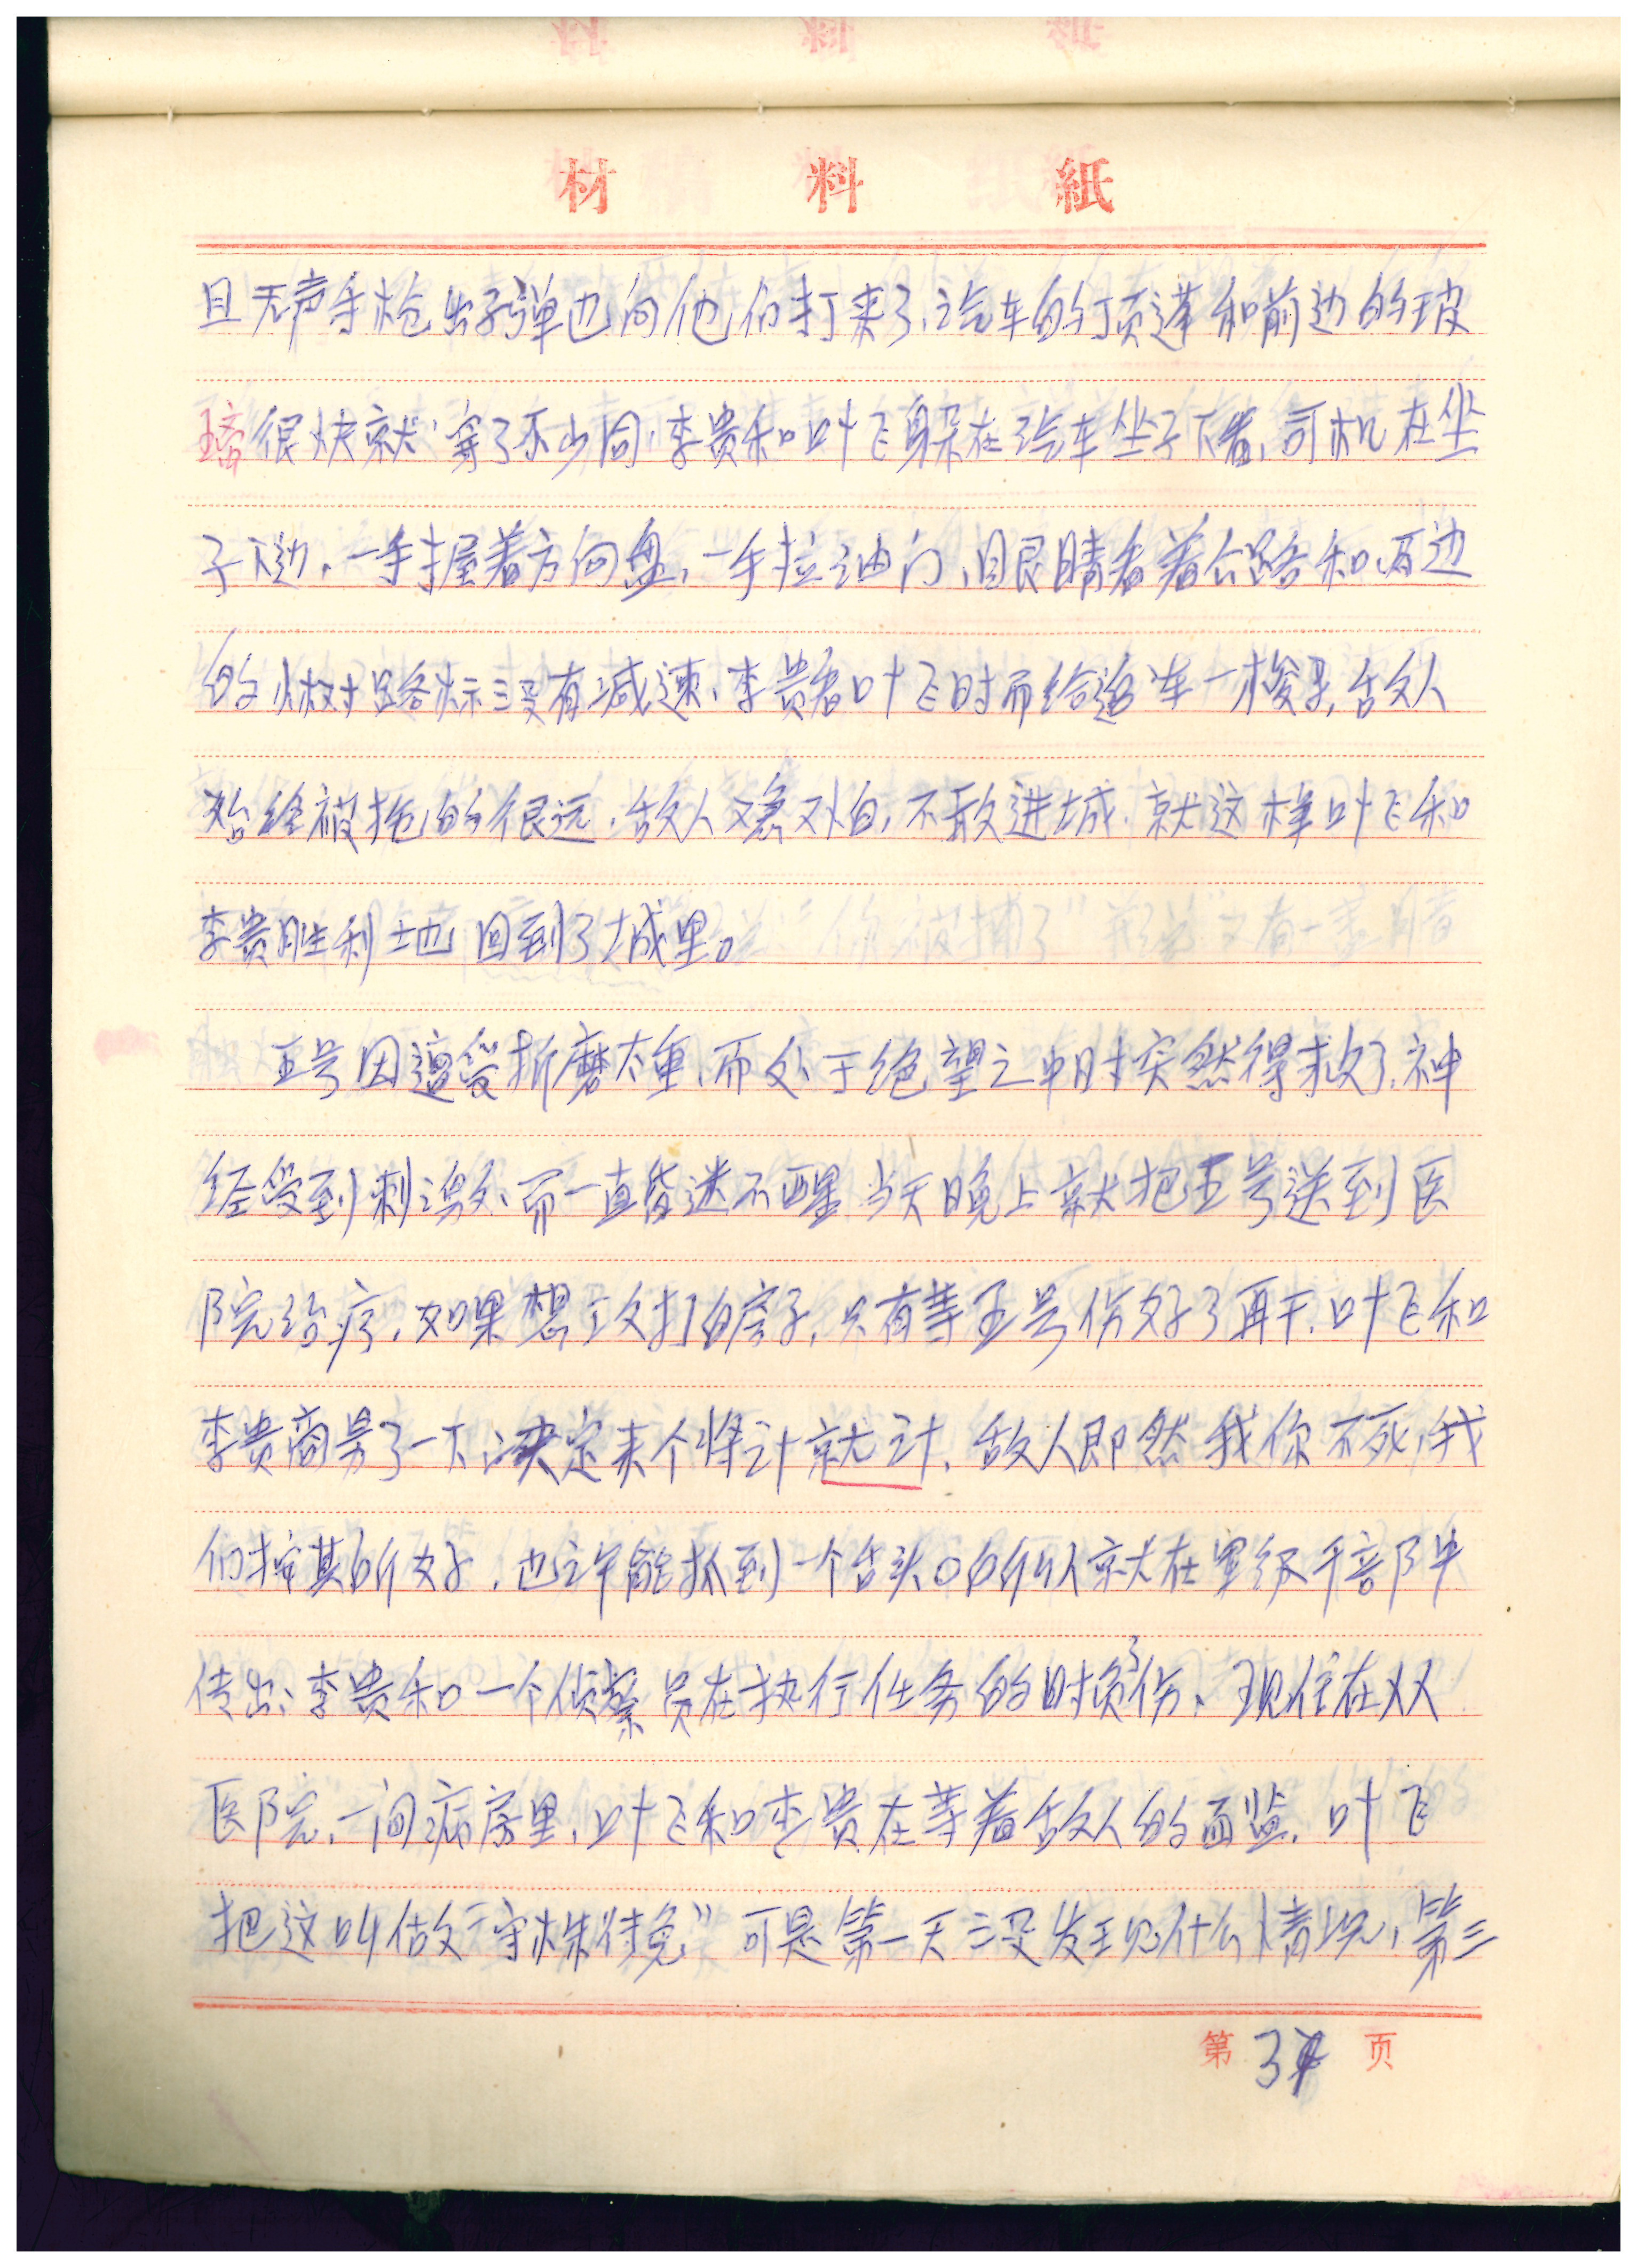 材 料 紙
且无声手枪出子弹也向他们打来了、汽车的顶蓬和前边的玻
璃很快就穿了不少同、李贵和叶飞身朶在汽车坐子下着,司机在坐
子下边、一手握着方向盘,一手拉油门、目艮睛看着公路和两边
的树路标没有减速、李贵和叶飞时而给追车一梭子,敌人
始终被拖的很远、敌人又急又怕,不敢进城、就这样叶飞和
李贵胜利地回到了城里。
五号因遭受折磨太重、而处于绝望之中时突然得救了、神
经受到刺激、而一直昏迷不醒 当天晚上就把五号送到医
院治疗、如果想攻打的房子,只有等五号伤好了再干、叶飞和
李贵商另了一下,决定来个将计就计、敌人即然我你不死,我
们按其所好、也许能抓到一个舌头。所以就在里级干部中
传出:李贵和一个侦察员在执行任务的时负了伤、现住在××
医院、一间病房里,叶飞和李贵在等着敌人的面监、叶飞
把这叫做“守株待兔”可是第一天没发现什么情况,第三
第 34 页